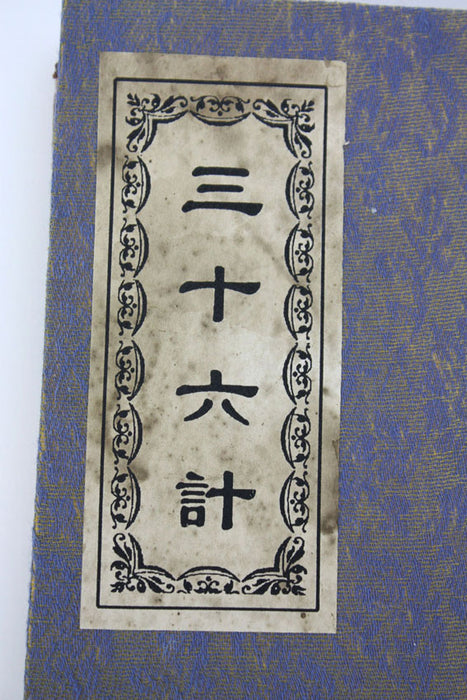 三十六計